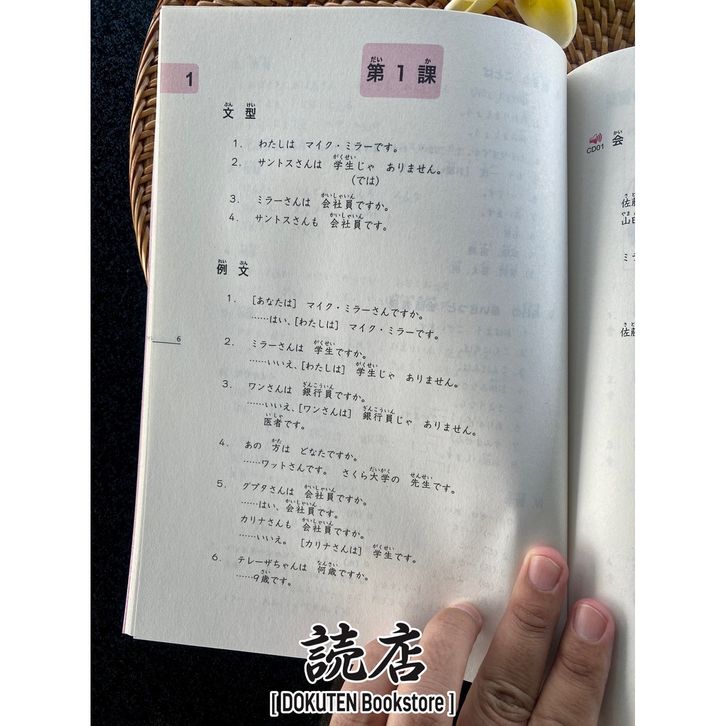 1
第1課
文型
1. わたしは マイク・ミラーです。
2. サントスさんは 学生じゃ ありません。
(では)
3. ミラーさんは 会社員ですか。
4. サントスさんも 会社員です。
例文
1. [あなたは] マイク・ミラーさんですか。
……はい、[わたしは] マイク・ミラーです。
2. ミラーさんは 学生ですか。
……いいえ、[わたしは] 学生じゃ ありません。
3. ワンさんは 銀行員ですか。
……いいえ、[ワンさんは] 銀行員じゃ ありません。
医者です。
4. あの 方は どなたですか。
……ワットさんです。 さくら大学の 先生です。
5. グプタさんは 会社員ですか。
……はい、会社員です。
カリナさんも 会社員ですか。
……いいえ。[カリナさんは] 学生です。
6. テレーザちゃんは 何歳ですか。
……9歳です。
6
CD01 会
佐藤
山田
ミラ
佐藤
読店
[ DOKUTEN Bookstore ]